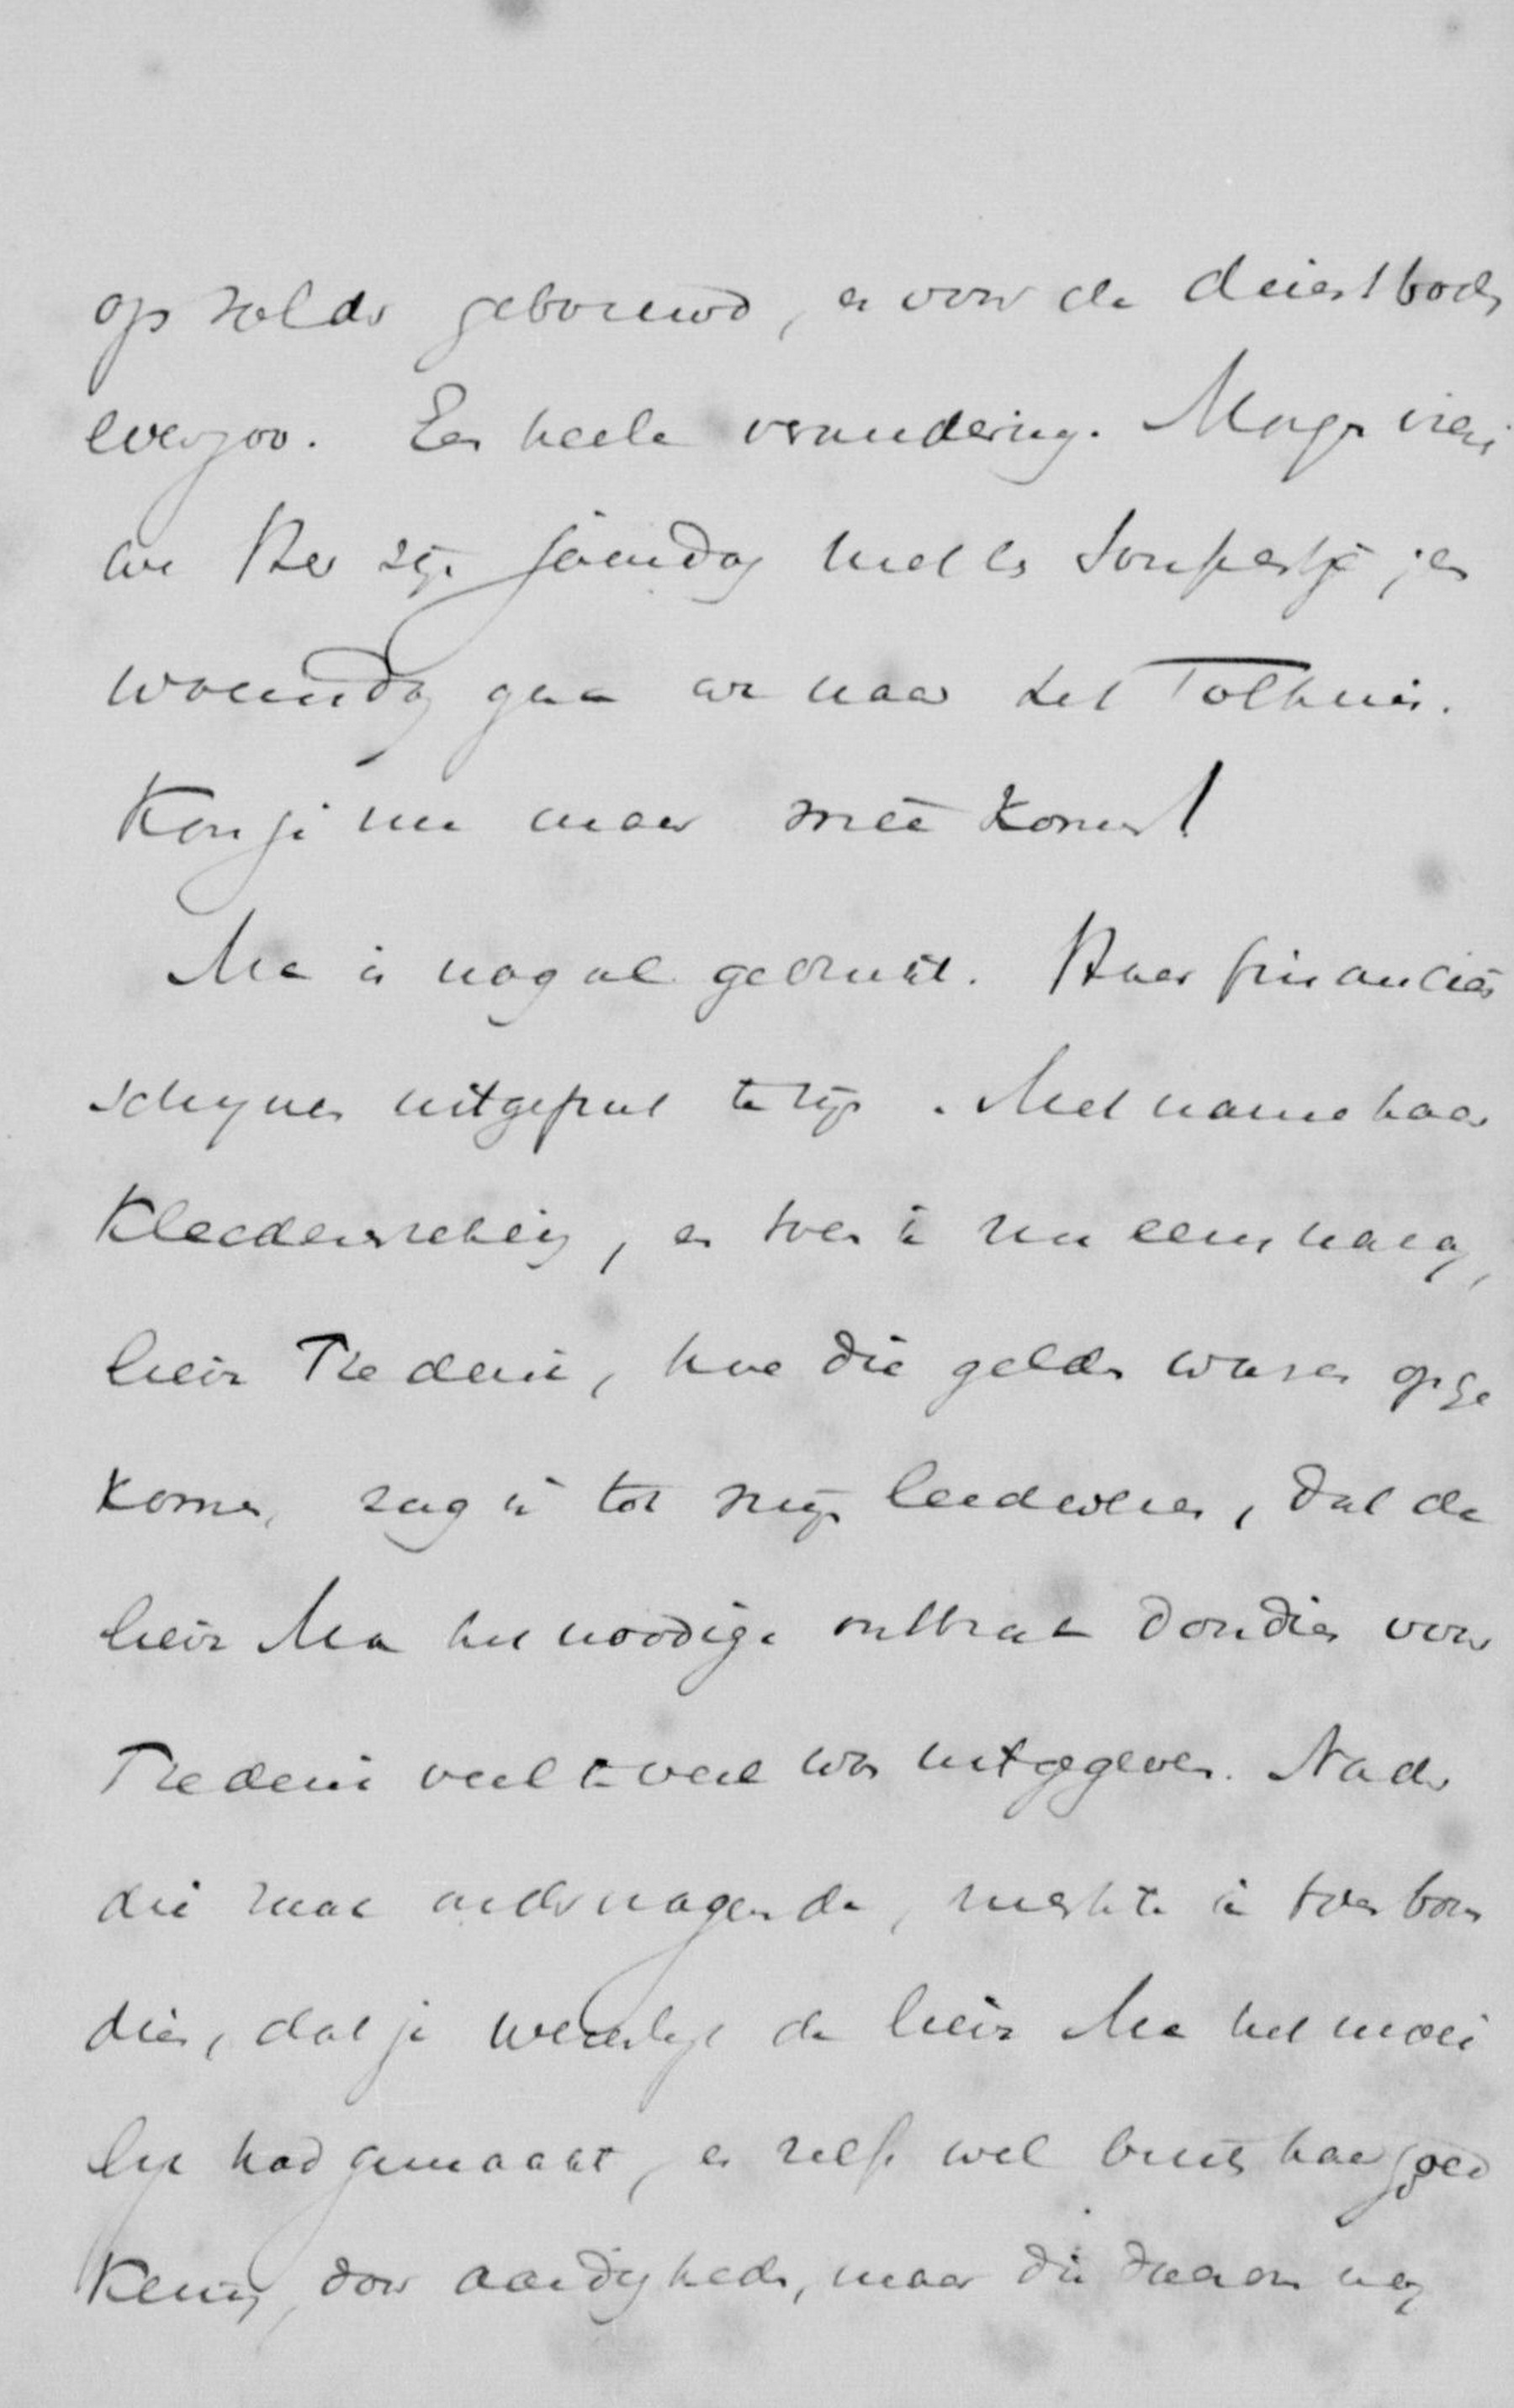 op zolder gebouwd, en voor de dienstboden
evenzoo. Een heele verandering. Morgen vieren
we Her zijn jaardag met een soupertje; en
woensdag gaan we naar het Tolhuis.
Kon je nu maar mee komen!
Ma is nog al gedrukt. Haar financiën
schijnen uitgeput te zijn. Met name haar
kleedenrekening, en toen ik nu eens naging,
lieve Frederic, hoe die gelden waren opge
komen, zag ik tot mijn leedwezen, dat de
lieve Ma het noodige ontbrak doordien voor
Frederic veel te veel was uitgegeven. Nader
die zaak nagende, merkte ik toen boven
dien, dat je werkelijk de lieve Ma het moei
lijk had gemaakt, en zelfs wel buiten haar goed
keuring, door aardigheden, maar die daarom nog